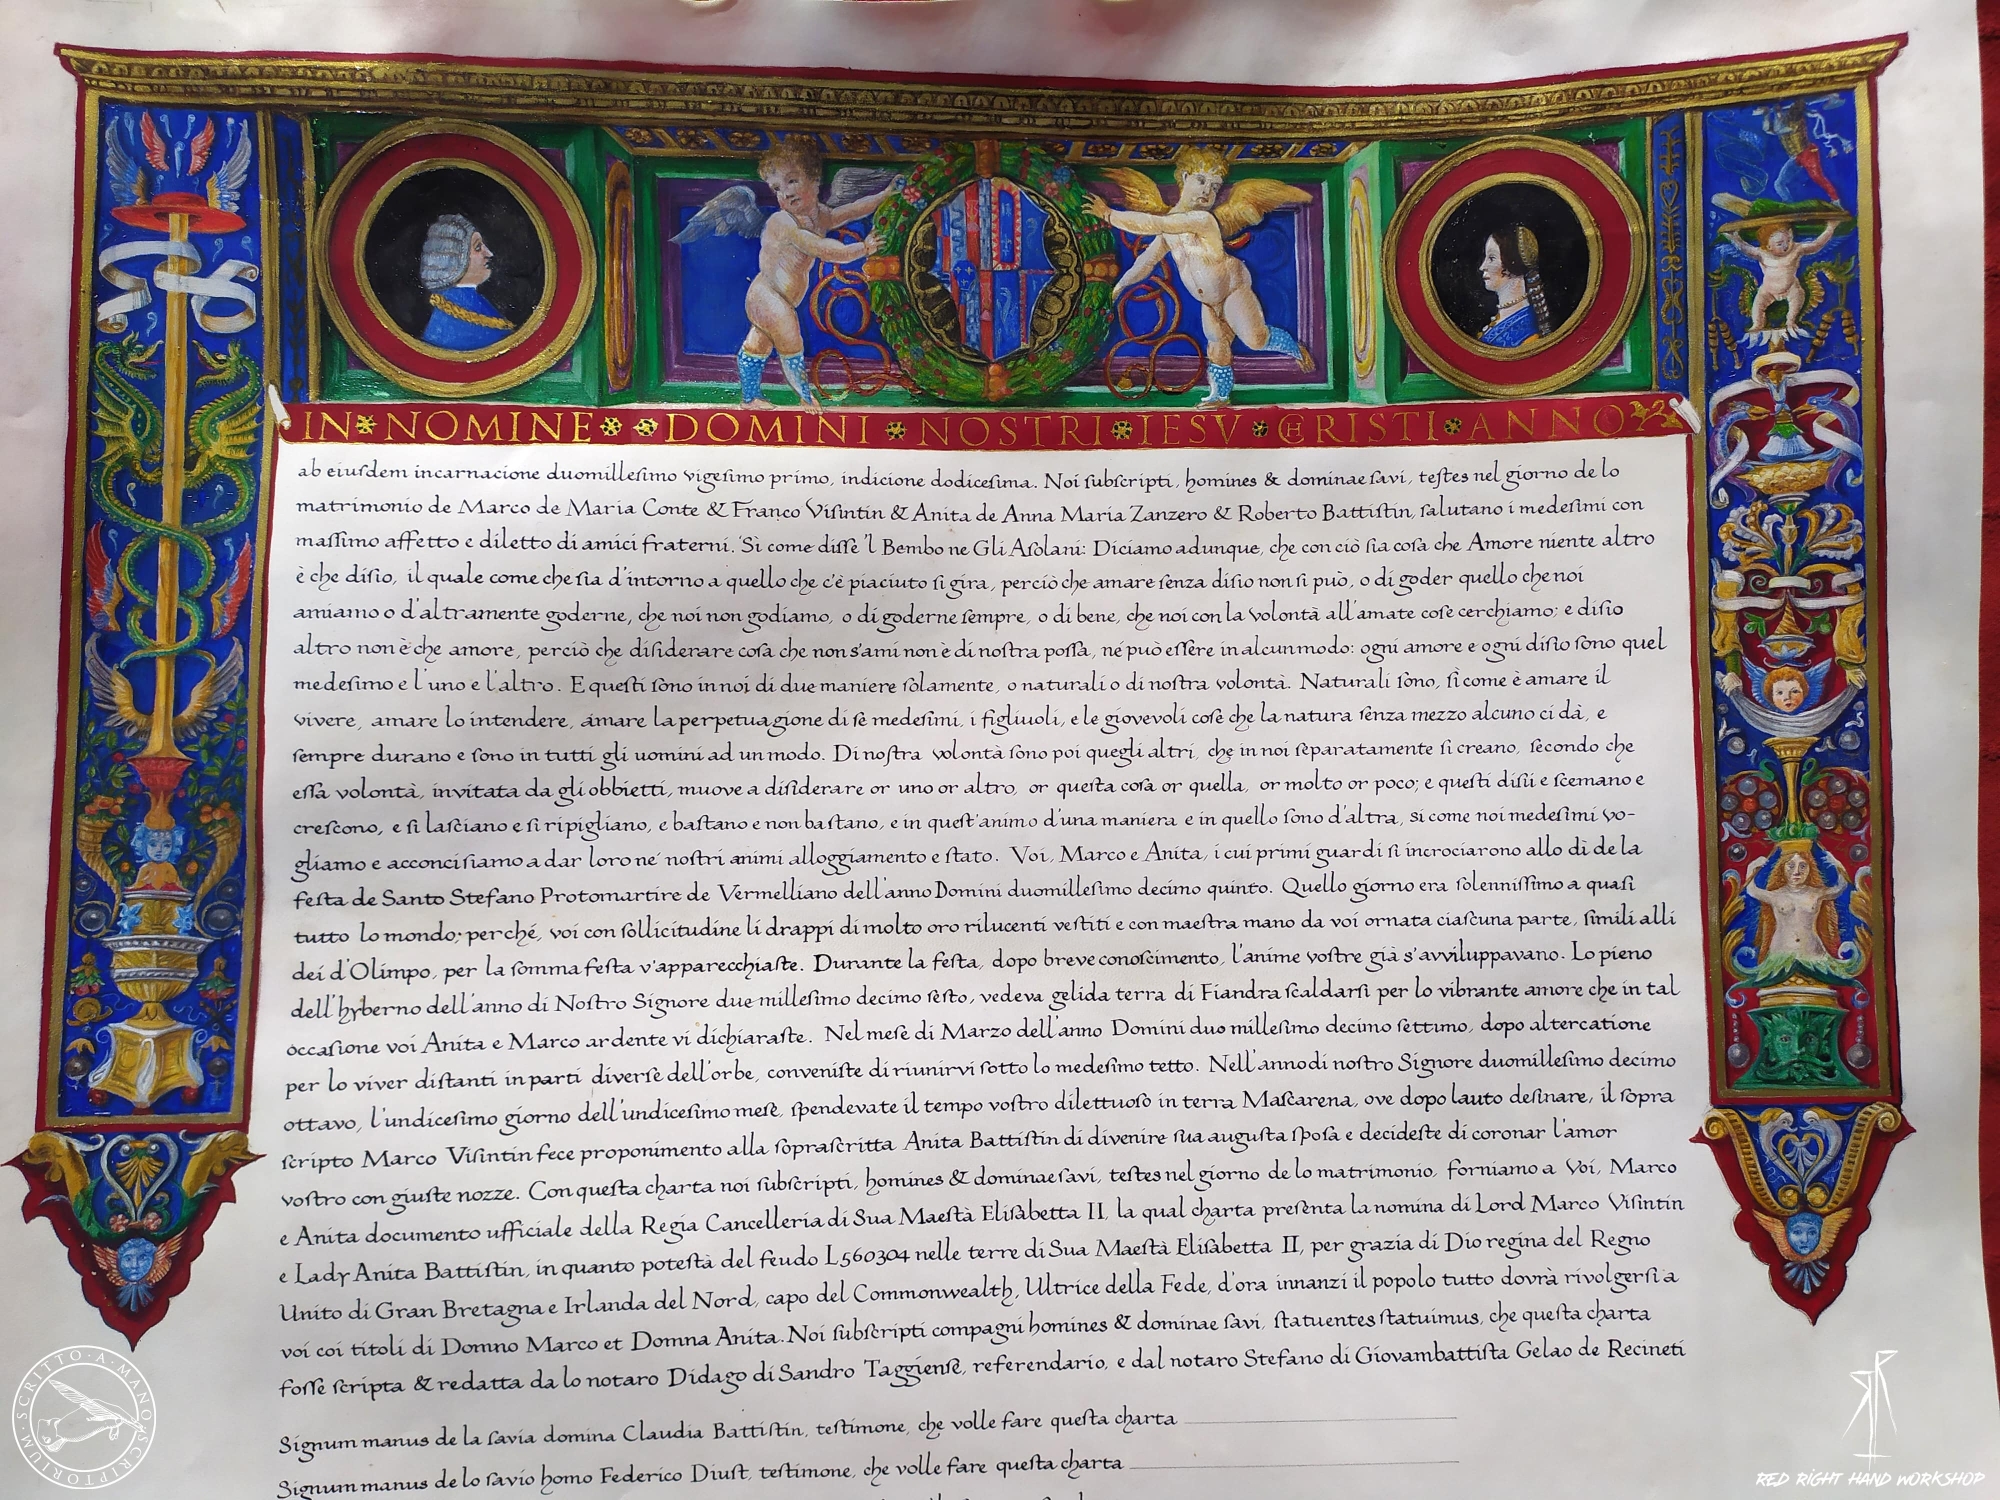 IN NOMINE DOMINI NOSTRI IESV CHRISTI ANNO
ab eiuſdem incarnacione duomilleſimo vigeſimo primo, indicione dodiceſima. Noi ſubſcripti, homines & dominae ſavi, teſtes nel giorno de lo
matrimonio de Marco de Maria Conte & Franco Viſintin & Anita de Anna Maria Zanzero & Roberto Battiſtin, ſalutano i medeſimi con
maſſimo affetto e diletto di amici fraterni. Sì come diſſe 'l Bembo ne Gli Aſolani: Diciamo adunque, che con ciò ſia coſa che Amore niente altro
è che diſio, il quale come che ſia d'intorno a quello che c'è piaciuto ſi gira, perciò che amare ſenza diſio non ſi può, o di goder quello che noi
amiamo o d'altramente goderne, che noi non godiamo, o di goderne ſempre, o di bene, che noi con la volontà all'amate coſe cerchiamo; e diſio
altro non è che amore, perciò che diſiderare coſa che non s'ami non è di noſtra poſſa, ne può eſſere in alcun modo: ogni amore e ogni diſio ſono quel
medeſimo e l'uno e l'altro. E queſti ſono in noi di due maniere ſolamente, o naturali o di noſtra volontà. Naturali ſono, ſì come è amare il
vivere, amare lo intendere, amare la perpetuagione di ſe medeſimi, i figliuoli, e le giovevoli coſe che la natura ſenza mezzo alcuno ci dà, e
ſempre durano e ſono in tutti gli uomini ad un modo. Di noſtra volontà ſono poi quegli altri, che in noi ſeparatamente ſi creano, ſecondo che
eſſa volontà, invitata da gli obbietti, muove a diſiderare or uno or altro, or queſta coſa or quella, or molto or poco; e queſti diſii e ſcemano e
creſcono, e ſi laſciano e ſi ripigliano, e baſtano e non baſtano, e in queſt'animo d'una maniera e in quello ſono d'altra, si come noi medeſimi vo-
gliamo e acconci ſiamo a dar loro ne' noſtri animi alloggiamento e ſtato. Voi, Marco e Anita, i cui primi guardi ſi incrociarono allo dì de la
feſta de Santo Stefano Protomartire de Vermelliano dell'anno Domini duomilleſimo decimo quinto. Quello giorno era ſolenniſſimo a quaſi
tutto lo mondo; perché, voi con ſollicitudine li drappi di molto oro rilucenti veſtiti e con maeſtra mano da voi ornata ciaſcuna parte, ſimili alli
dei d'Olimpo, per la ſomma feſta v'apparecchiaſte. Durante la feſta, dopo breve conoſcimento, l'anime voſtre già s'avviluppavano. Lo pieno
dell'hyberno dell'anno di Noſtro Signore due milleſimo decimo ſeſto, vedeva gelida terra di Fiandra ſcaldarſi per lo vibrante amore che in tal
occaſione voi Anita e Marco ardente vi dichiaraſte. Nel meſe di Marzo dell'anno Domini duo milleſimo decimo ſettimo, dopo altercatione
per lo viver diſtanti in parti diverſe dell'orbe, conveniſte di riunirvi ſotto lo medeſimo tetto. Nell'anno di noſtro Signore duomilleſimo decimo
ottavo, l'undiceſimo giorno dell'undiceſimo meſe, ſpendevate il tempo voſtro dilettuoſo in terra Maſcarena, ove dopo lauto deſinare, il ſopra
ſcripto Marco Viſintin fece proponimento alla ſopraſcritta Anita Battiſtin di divenire ſua auguſta ſpoſa e decideſte di coronar l'amor
voſtro con giuſte nozze. Con queſta charta noi ſubſcripti, homines & dominae ſavi, teſtes nel giorno de lo matrimonio, forniamo a Voi, Marco
e Anita documento ufficiale della Regia Cancelleria di Sua Maeſtà Eliſabetta II, la qual charta preſenta la nomina di Lord Marco Viſintin
e Lady Anita Battiſtin, in quanto poteſtà del feudo L560304 nelle terre di Sua Maeſtà Eliſabetta II, per grazia di Dio regina del Regno
Unito di Gran Bretagna e Irlanda del Nord, capo del Commonwealth, Ultrice della Fede, d'ora innanzi il popolo tutto dovrà rivolgerſi a
voi coi titoli di Domno Marco et Domna Anita. Noi ſubſcripti compagni homines & dominae ſavi, ſtatuentes ſtatuimus, che queſta charta
foſſe ſcripta & redatta da lo notaro Didago di Sandro Taggienſe, referendario, e dal notaro Stefano di Giovambattiſta Gelao de Recineti
Signum manus de la ſavia domina Claudia Battiſtin, teſtimone, che volle fare queſta charta
Signum manus de lo ſavio homo Federico Diuſt, teſtimone, che volle fare queſta charta
SCRITTO·A·MANO SCRIPTORIUM
RED RIGHT HAND WORKSHOP